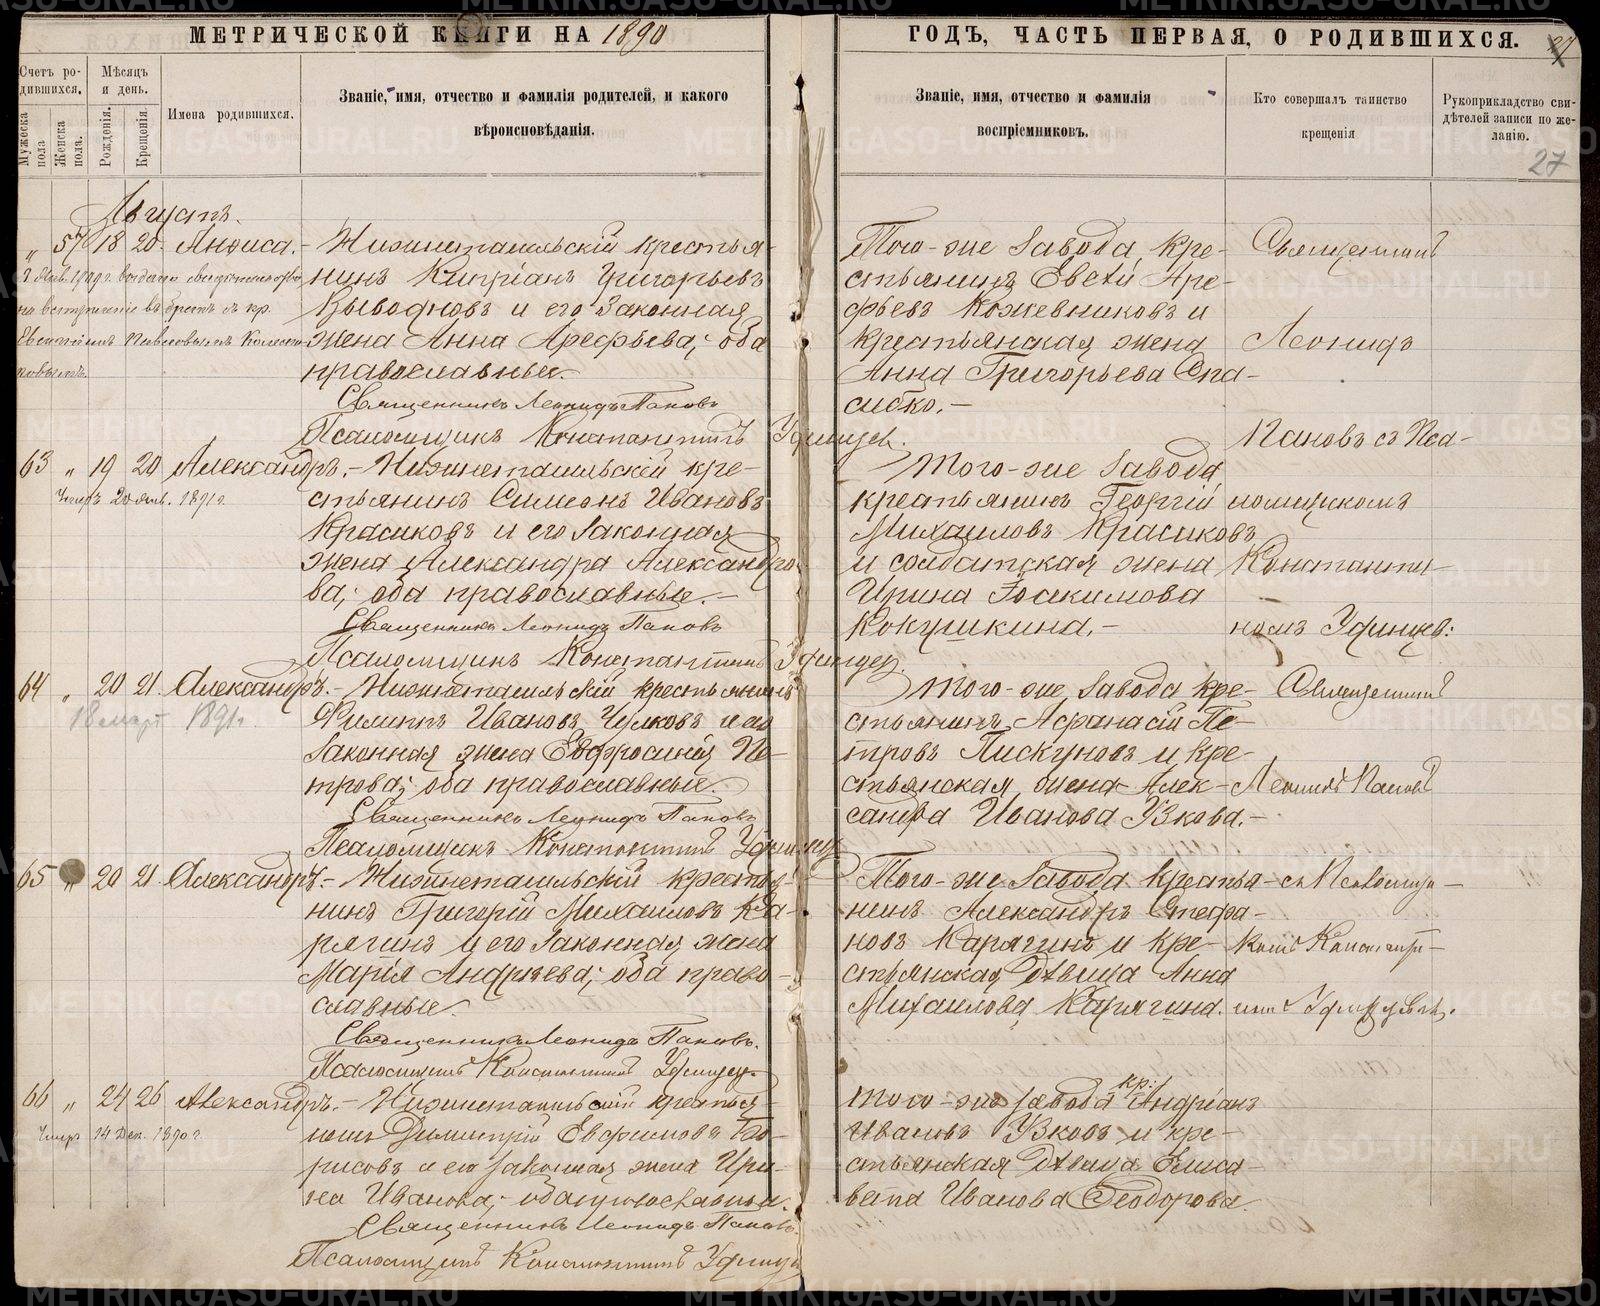 МЕТРИЧЕСКОЙ КНИГИ НА 1890
ГОДЪ, ЧАСТЬ ПЕРВАЯ, О РОДИВШИХСЯ.
27
Счетъ родившихся.
Мужеска пола
Женска пола.
Мѣсяцъ и день.
Рожденія.
Крещенія
Имена родившихся.
Званіе, имя, отчество и фамилія родителей, и какого
вѣроисповѣданія.
Званіе, имя, отчество и фамилія
воспріемниковъ.
Кто совершалъ таинство
крещенія
Рукоприкладство сви-
дѣтелей записи по же-
ланію.
27
Августъ.
„ 57 18 20 Анфиса.
Нижнетагильскій крестья-
нинъ Кипріанъ Григорьевъ
и его законная
жена Анна Арефьева; оба
православные.
Священникъ Леонидъ Пановъ
Псаломщикъ Константинъ Удинцев.
на вступленіе въ бракъ съ кр.
Того-же завода кре-
стьянинъ Евсей Аре-
фьевъ Кожевниковъ и
крестьянская жена
Анна Григорьева Спа-
сибко.-
Священникъ
Леонидъ
Пановъ съ Пса-
ломщикомъ
Константи-
номъ Удинцев:
63 „ 19 20 Александръ.
Умеръ 20 янв. 1891 г.
Нижнетагильскій кре-
стьянинъ Симеонъ Ивановъ
Красиковъ и его законная
жена Александра Александро-
ва; оба православные.-
Священникъ Леонидъ Пановъ
Псаломщикъ Константинъ Удинцев.
Того-же завода
крестьянинъ Георгій
Михаиловъ Красиковъ
и солдатская жена
Ирина Іоакимова
Кокушкина.-
64 „ 20 21 Александръ.
18 март 1891 г.
Нижнетагильскій крестьянинъ
Филиппъ Ивановъ Чулковъ и его
законная жена Евфросинія Пе-
трова; оба православные.
Священникъ Леонидъ Пановъ
Псаломщикъ Константинъ Удинцев
Того-же завода кре-
стьянинъ Афанасій Пе-
тровъ Пискуновъ и кре-
стьянская жена Алек-
сандра Иванова Узкова.-
Священникъ
Леонидъ Пановъ
съ Псаломщи-
комъ Константи-
номъ Удинцевым.
65 „ 20 21 Александръ.
Нижнетагильскій крестья-
нинъ Григорій Михаиловъ Ка-
рягинъ и его законная жена
Марія Андреева; оба право-
славные.
Священникъ Леонидъ Пановъ.
Псаломщикъ Константинъ Удинцев
Того-же завода крестья-
нинъ Александръ Стефа-
новъ Карягинъ и кре-
стьянская дѣвица Анна
Михаилова Карягина.
66 „ 24 26 Александръ.
Умеръ 14 Дек. 1890 г.
Нижнетагильскій крестья-
нинъ Димитрій Евфимовъ Бо-
рисовъ и его законная жена Ири-
на Иванова; оба православные.
Священникъ Леонидъ Пановъ.
Псаломщикъ Константинъ Удинцев
Того-же завода кр: Андріанъ
Ивановъ Узковъ и кре-
стьянская дѣвица Елиса-
вета Иванова Ѳеодорова.
METRIKI.GASO-URAL.RU